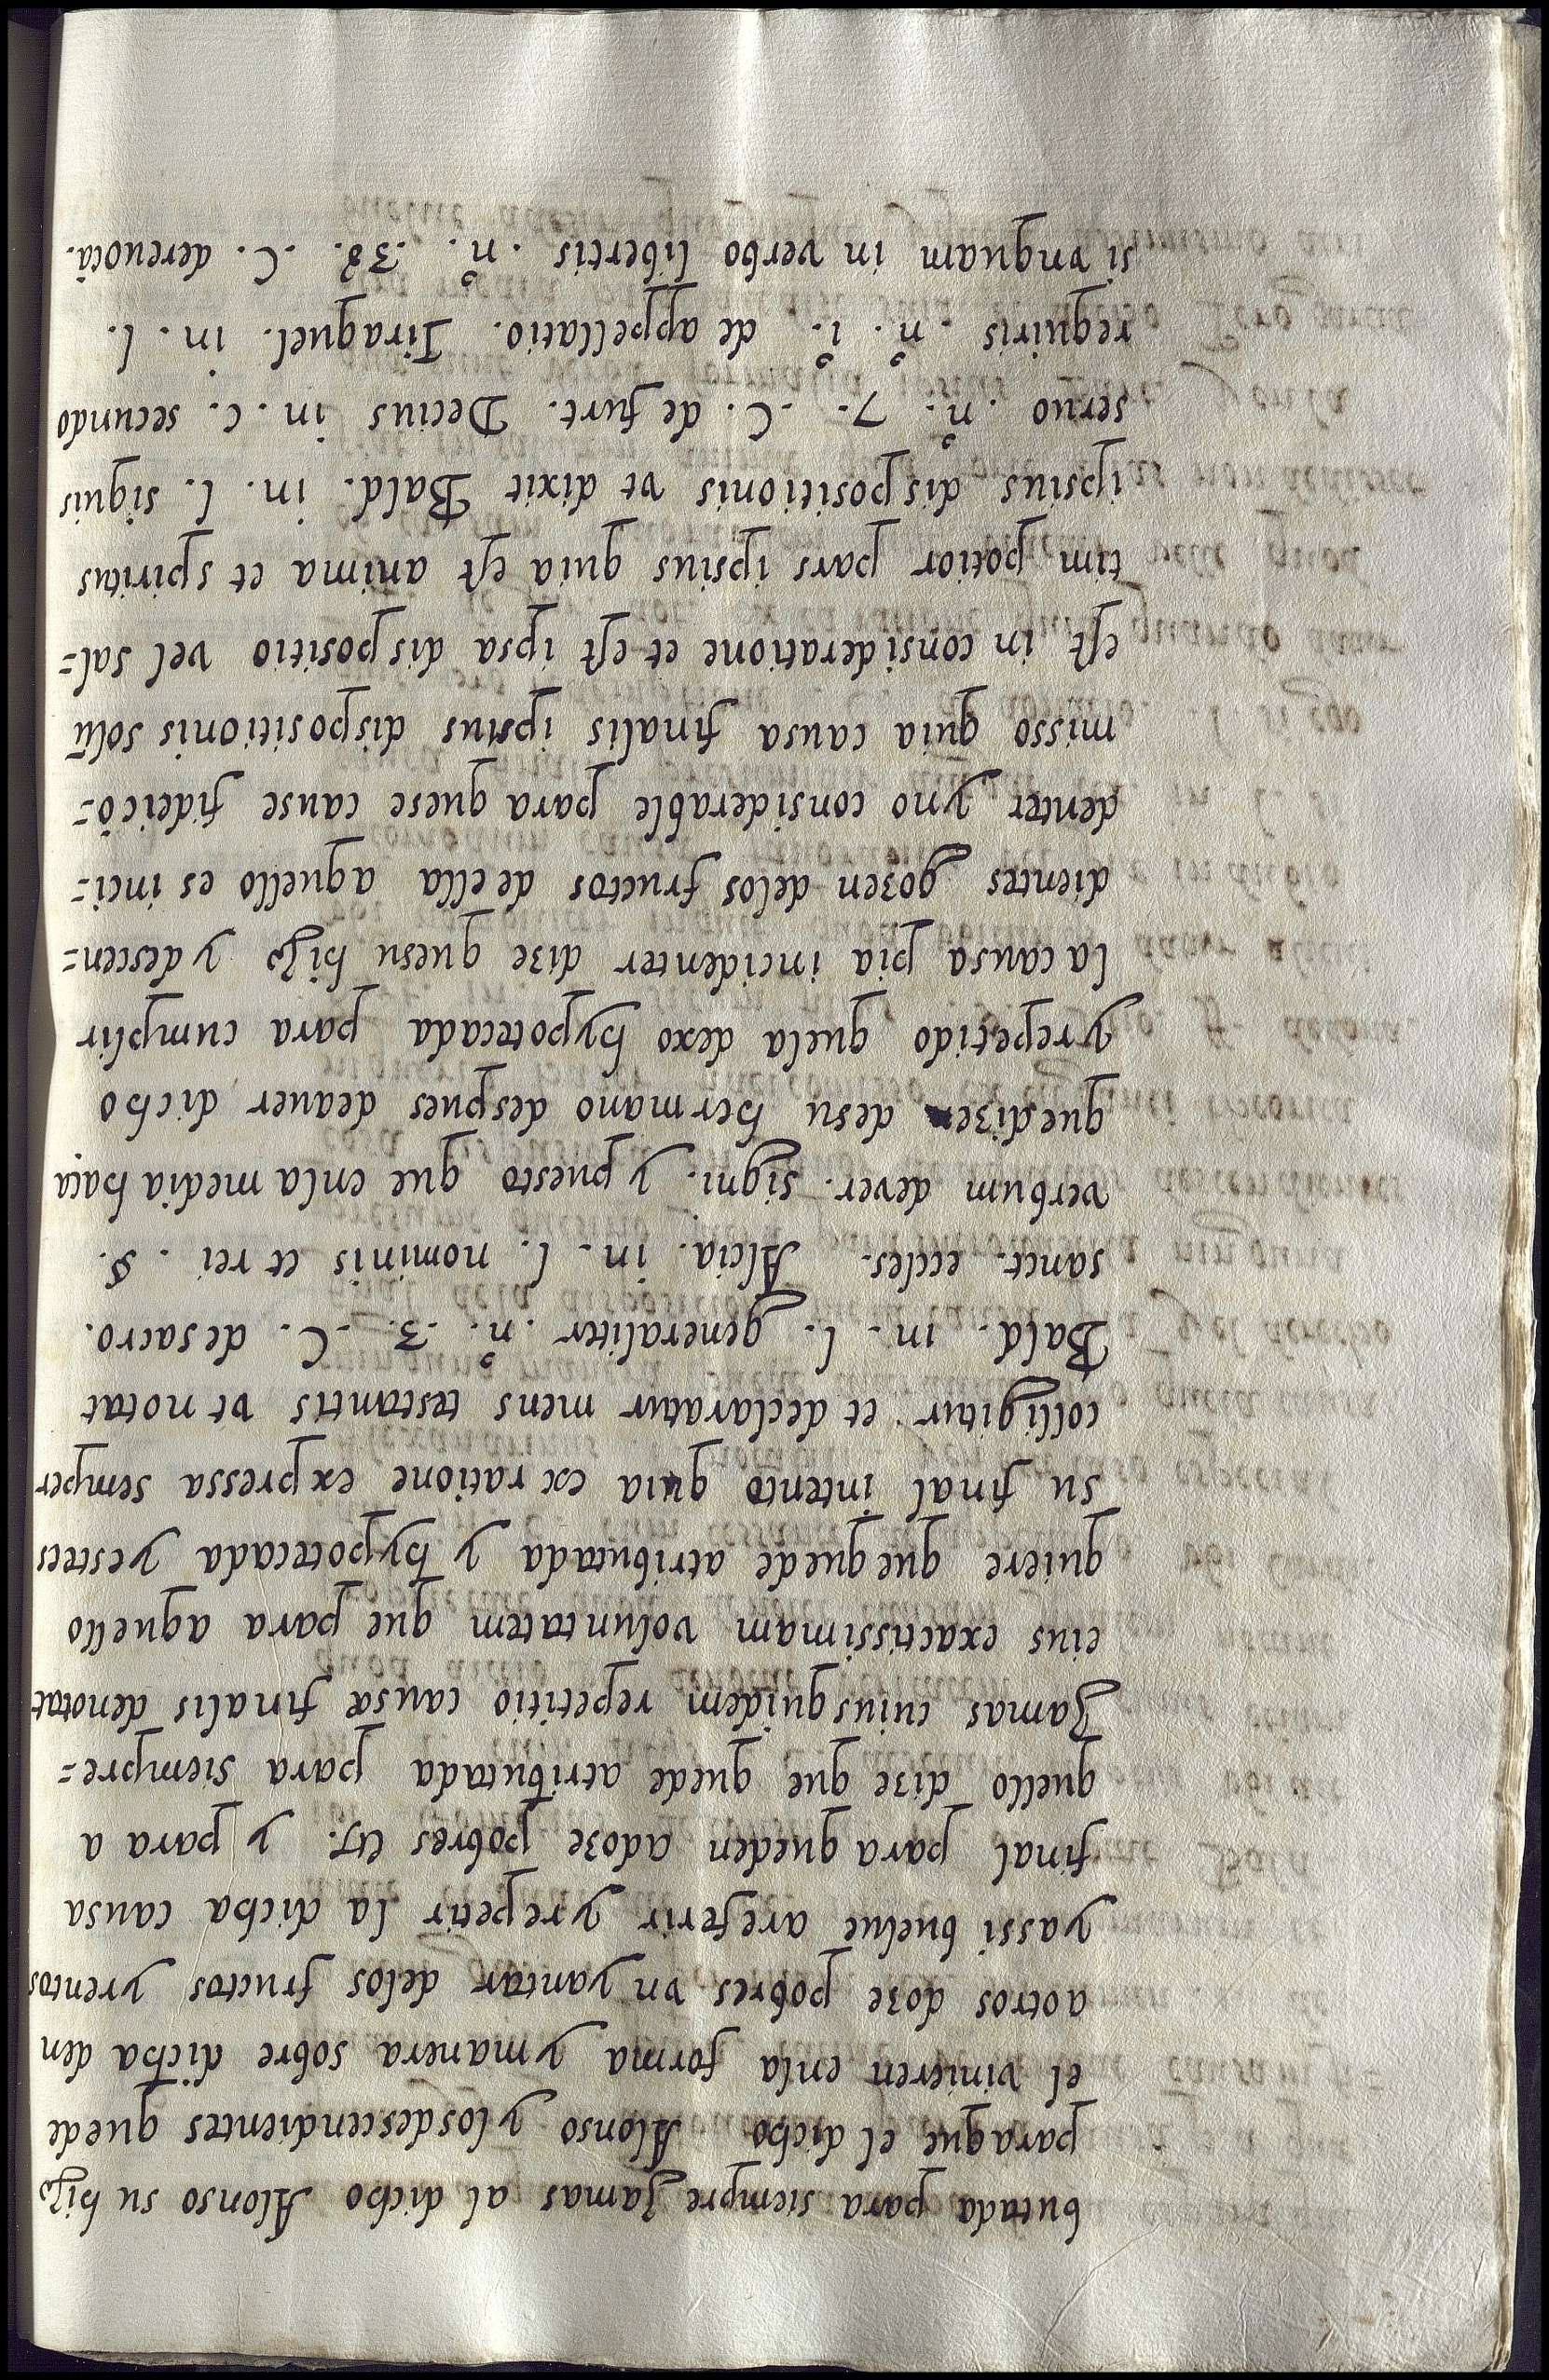 butada para siempre Jamas al dicho Alonso su hijo
paraque el dicho Alonso ylosdescendientes quede
el vinieren enla forma ymanera sobre dicha den
aotros doze pobres vn yantar delos fructos yrentas
yassi buelue areferir yrepetir la dicha causa
final para queden adoze pobres &c. y para a
quello dize que quede atributada para siempre=
Jamas cuiusquidem repetitio causæ finalis denotat
eius exactissimam voluntatem que para aquello
quiere que quede atributada y hypotecada yestees
su final intento quia ex ratione expressa semper
colligitur et declaratur mens testantis vt notat
Bald. in. l. generaliter .nº. 3. C. desacro.
sanct. eccles. Alcia. in. l. nominis et rei . §.
verbum dever. signi. y puesto que enla media haça
quedizen desu hermano despues deauer dicho
yrepetido quela dexo hypotecada para cumplir
lacausa pia incidenter dize quesu hijo y descen=
dientes gozen delos fructos deella aquello es inci=
denter yno considerable para quese cause fideicõ=
misso quia causa finalis ipsius dispositionis solũ
est in consideratione et est ipsa dispositio vel sal=
tim potior pars ipsius quia est anima et spiritus
ipsius dispositionis vt dixit Bald. in. l. siquis
seruo .nº. 7. C. de furt. Decius in. c. secundo
requiris .nº. iº. de appellatio. Tiraquel. in. l.
si vnquam in verbo libertis .nº. 38. C. dereuocã.